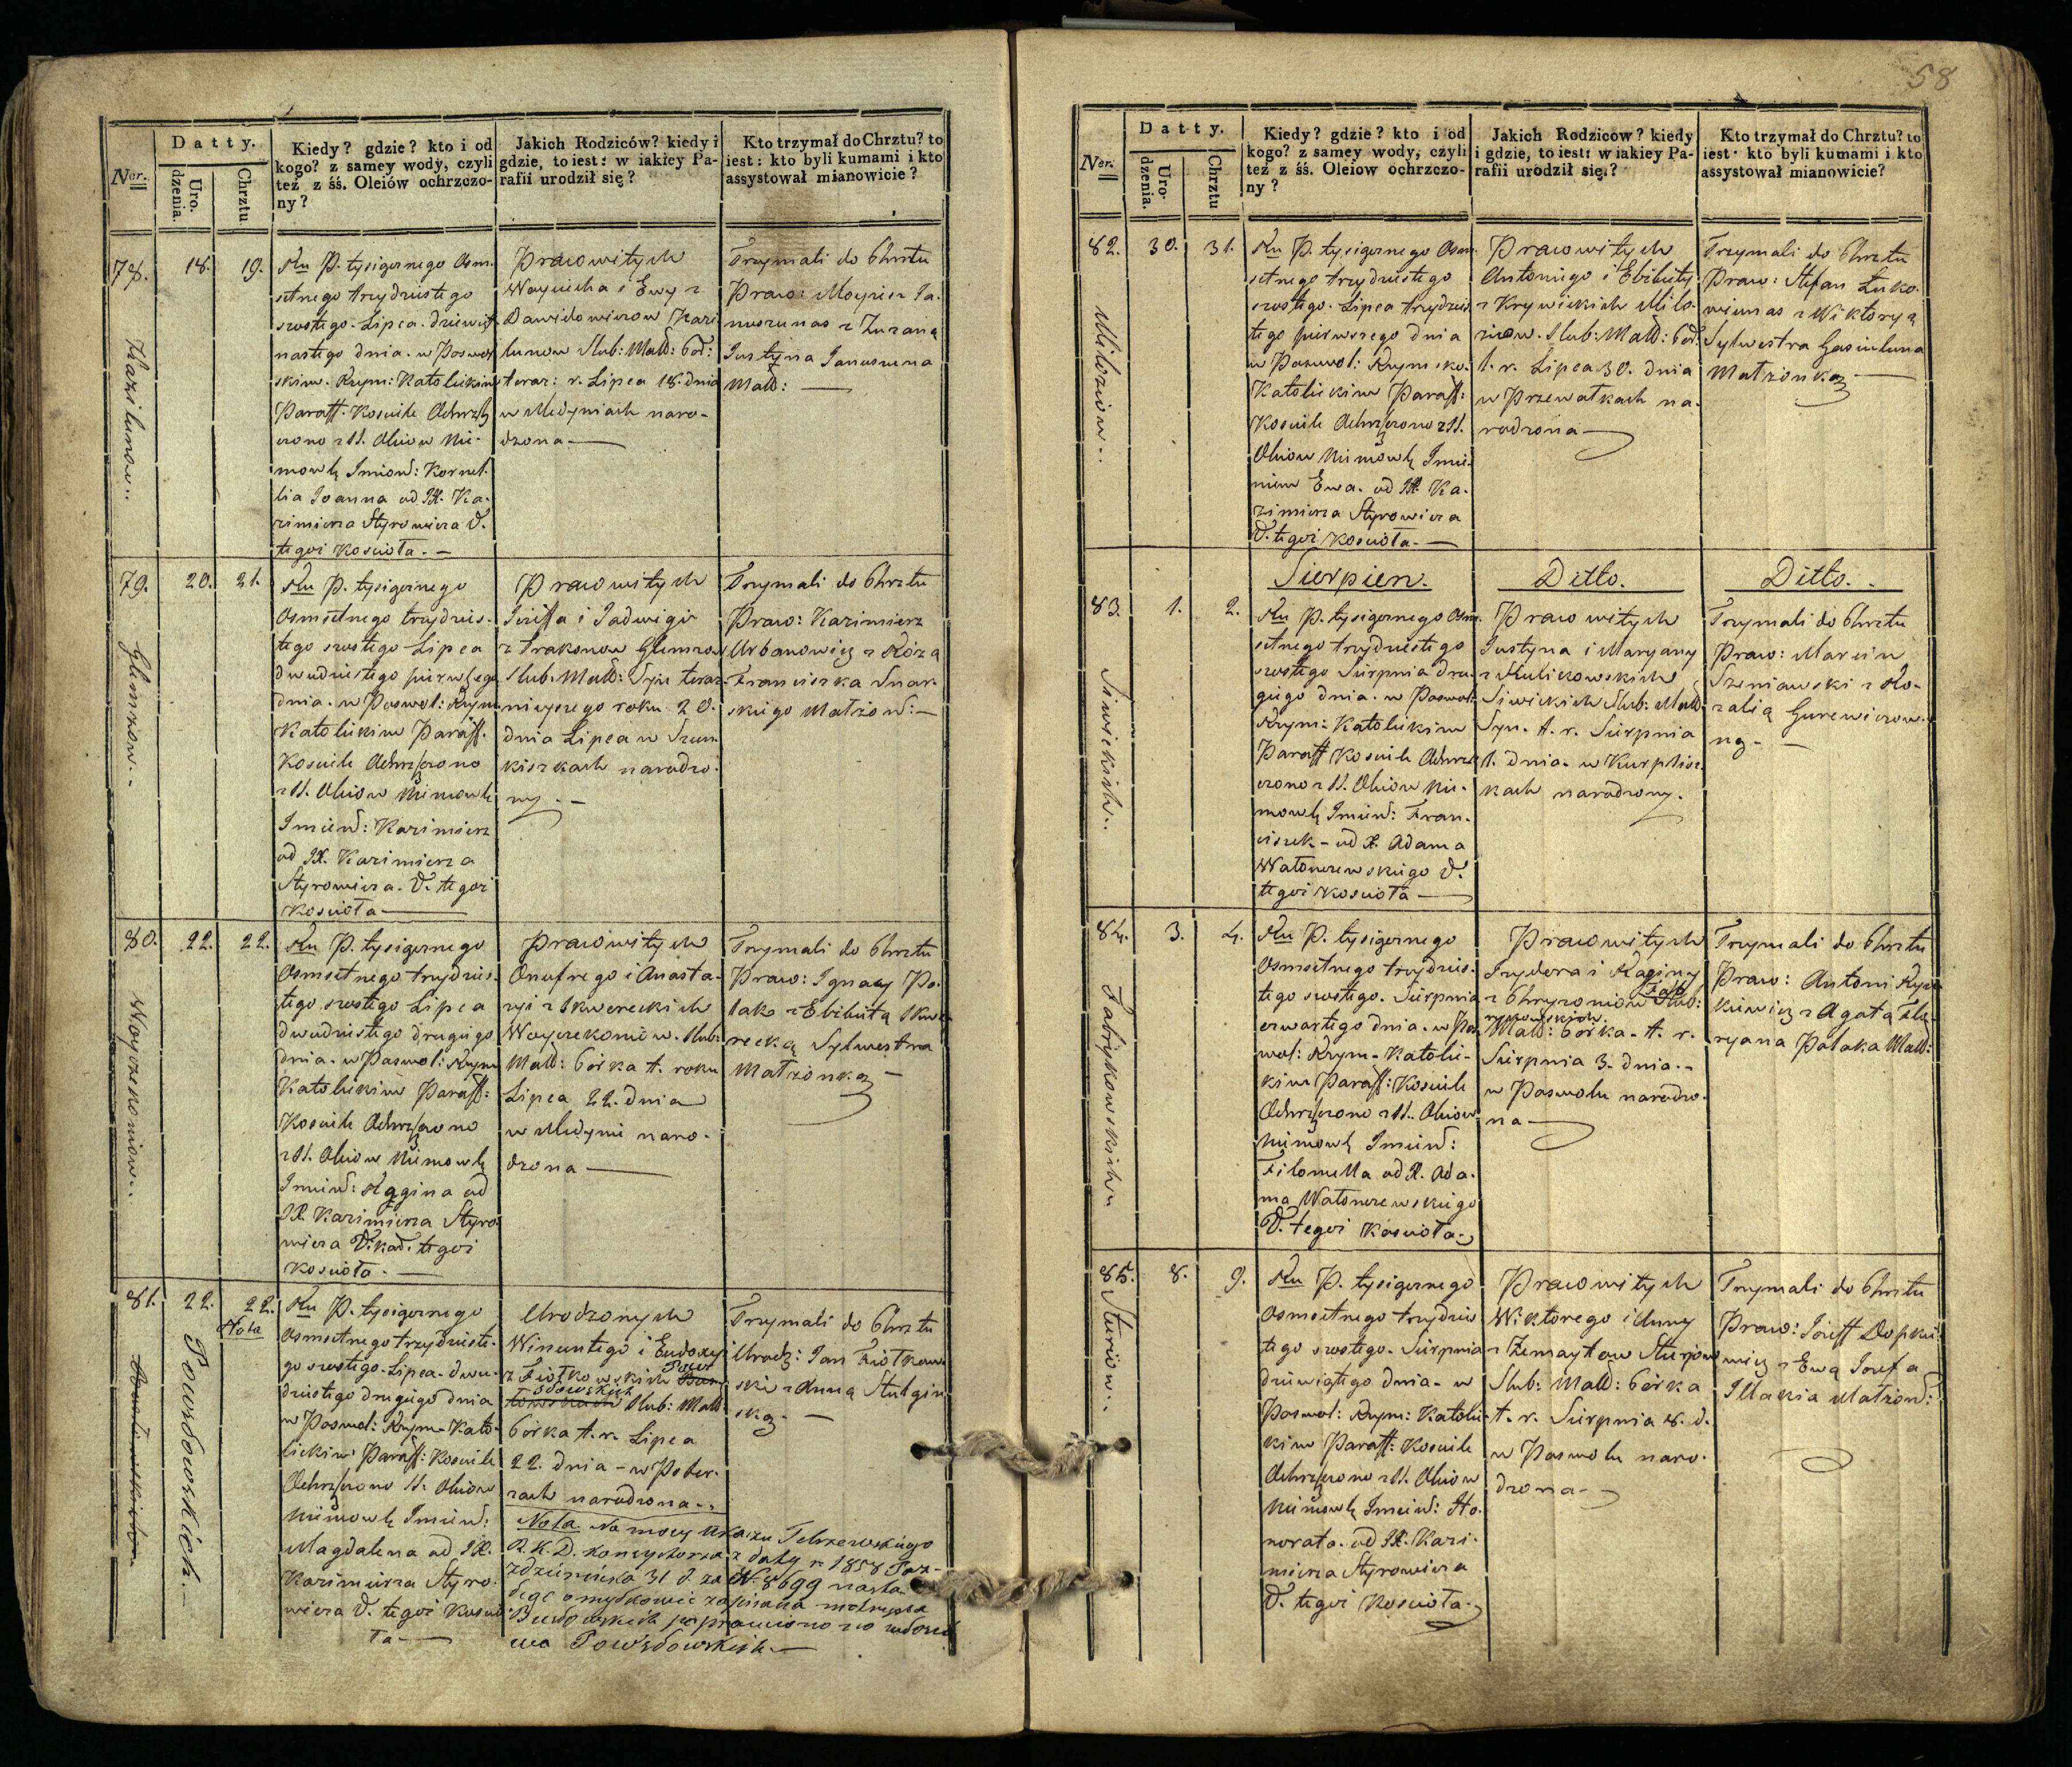 58
Ner.
Datty.
Uro. dzenia.
Chrztu
Kiedy? gdzie? kto i od
kogo? z samey wody, czyli
też z śś. Oleiów ochrzczo-
ny?
Jakich Rodziców? kiedy i
gdzie, to iest: w iakiey Pa-
rafii urodził się?
Kto trzymał do Chrztu? to
iest: kto byli kumami i kto
assystował mianowicie?
78.
18.
19.
Ru P. tysiącznego Osm-
setnego trzydziestego
szostego. Lipca. dziewięt
nastego dnia. w Poswol
skim. Rzym: Katolickim
Paraff. Kosciele Ochrzcz
czono z SS. Oleiow Nie-
mowlę Imion: Kornel.
lia Joanna od JX. Ka-
zimierza Styrowicza W.
tegoż Koscioła. —
Prawowitych
Woyciecha i Ewy z
Dawidowiczow Kazi
lunow Slub: Małż: Cor:
teraz: r. Lipca 18. dnia
w Medyniach naro-
dzona —
Trzymali do Chrztu
Praw: Moyzesz Ja-
nuszunas z Zuzanną
Justyna Januszuna
Małż: —
79.
20.
21.
Ru P. tysiącznego
Osmsetnego trzydzies-
tego szostego Lipca
dwudziestego pierwszego
dnia. w Poswol: Rzym
Katolickim Paraff.
Kosciele Ochrzczono
z SS. Oleiow Niemowle
Imien: Kazimierz
od JX. Kazimierza
Styrowicza. W. tegoż
Kosciola —
Prawowitych
Jozeffa i Jadwigi
z Trakonow Glemzow
Slub. Małż: Syn teraz-
nieyszego roku 20.
dnia Lipca w Szun-
kiszkach narodzo-
ny. —
Trzymali do Chrztu
Praw: Kazimierz
Urbanowicz z Rózą
Franciszka Snar-
skiego Małzon: —
Glemzow..
80.
22.
22.
Ru P. tysiącznego
Osmsetnego trzydzies-
tego szostego Lipca
dwudziestego drugiego
dnia. w Poswol: Rzym
Katolickim Paraff:
Kosciele Ochrzczono
z SS. Oleiow Niemowlę
Imien: Regina od
JX. Kazimierza Styro
wicza Wikar. tegoz
Kosciola. —
Prawowitych
Onufrego i Anasta-
zyi z Skwereckich
Woyczekoniow. Slub:
Małż: Córka t. roku
Lipca 22. dnia
w Medyni naro-
dzona —
Trzymali do Chrztu
Praw: Ignacy Po-
lak z Elżbietą Skwe
recką Sylwestra
Małzonką —
Woyczekoniow..
81.
22.
22.
Nota
Ru P. tysiącznego
Osmsetnego trzydzieste-
go szostego. Lipca. dwu-
dziestego drugiego dnia
w Poswol: Rzym-Kato-
lickim Paraff: Kosciele
Ochrzczono SS. Oleiow
Niemowlę Imien:
Magdalena od JX.
Kazimierza Styro-
wicza W. tegoż Koscio
ła —
Urodzonych
Wincentego i Eudoxyi
z Fiotkowskich
Slub: Małż
Córka t. r. Lipca
22. dnia - w Pober-
zach narodzona..
Nota. Na mocy Ukazu Telszewskiego
R. K. D. Konsystorza z daty r. 1858 Paz-
dziernika 31 d. za N. 8699 nasta
Trzymali do Chrztu
Urodz: Jan Fiotkow
ski z Anną Stulgin
ską. —
Powsdowskich
Ner.
Datty.
Uro. dzenia.
Chrztu
Kiedy? gdzie? kto i od
kogo? z samey wody, czyli
też z śś. Oleiow ochrzczo-
ny?
Jakich Rodziców? kiedy
i gdzie, to iest: w iakiey Pa-
rafii urodził się?
Kto trzymał do Chrztu? to
iest: kto byli kumami i kto
assystował mianowicie?
82.
30.
31.
Ru P. tysiącznego Osm
setnego trzydziestego
szostego. Lipca trzydzies
tego pierwszego dnia
w Poswol: Rzymsko-
Katolickim Paraff:
Kosciele Ochrzczono z SS.
Oleiow Niemowlę Imie-
niem Ewa. od JX. Ka-
zimierza Styrowicza
W. tegoż Kosciola —
Prawowitych
Antoniego i Elżbiety
z Krywickich Milo-
ziow. Slub: Małż: Cor.
t. r. Lipca 30. dnia
w Przewalkach na-
rodzona —
Trzymali do Chrztu
Praw: Stefan Luko-
wienas z Wiktoryą
Sylwestra Gasiuluna
Małzonką —
Miloziow..
Sierpien.
Ditto.
Ditto.
83.
1.
2.
Ru P. tysiącznego Osm
setnego trzydziestego
szostego Sierpnia dru-
giego dnia. w Poswol:
Rzym: Katolickim
Paraff Kosciele Ochrz
czono z SS. Oleiow Nie-
mowlę Imien: Fran-
ciszek - od X. Adama
Watonczewskiego W.
tegoż Kosciola —
Prawowitych
Justyna i Maryany
z Kulikowskich
Siwickich Slub: Małż
Syn. t. r. Sierpnia
1. dnia. w Kurpisz-
kach narodzony.
Trzymali do Chrztu
Praw: Marcin
Szeniawski z Ro-
zalią Gurewiczow-
ną. —
Siwickich..
84.
3.
4.
Ru P. tysiącznego
Osmsetnego trzydzies-
tego szostego. Sierpnia
czwartego dnia. w Pos-
wol: Rzym-Katolic-
kim Paraff: Kosciele
Ochrzczono z SS. Oleiow
Niemowlę Imien:
Filomella od X. Ada-
ma Watonczewskiego
W. tegoż Kosciola.
Prawowitych
Izydora i Reginy
z Chryzoniow Slub:
Fab
rykowskich.
Małż: Córka - t. r.
Sierpnia 3. dnia. -
w Poswolu narodzo-
na —
Trzymali do Chrztu
Praw: Antoni Ryn
kiewicz z Agatą Flo-
ryana Polaka Małż:
Fabrykowskich
85.
8.
9.
Ru P. tysiącznego
Osmsetnego trzydzies
tego szostego. Sierpnia
dziewiątego dnia - w
Poswol: Rzym: Katolic-
kim Paraff: Kosciele
Ochrzczono z SS. Oleiow
Niemowlę Imien: Ho-
norata. od JX. Kazi-
mierza Styrowicza
W. tegoż Kosciola.
Prawowitych
Wiktorego i Anny
z Zemaytow Sturiow
Slub: Małż: Córka
t. r. Sierpnia 8. d.
w Poswolu naro-
dzona -
Trzymali do Chrztu
Praw: Józeff Dopkie-
wicz z Ewą Jozefa
Illakia Małzon:
Sturiow..